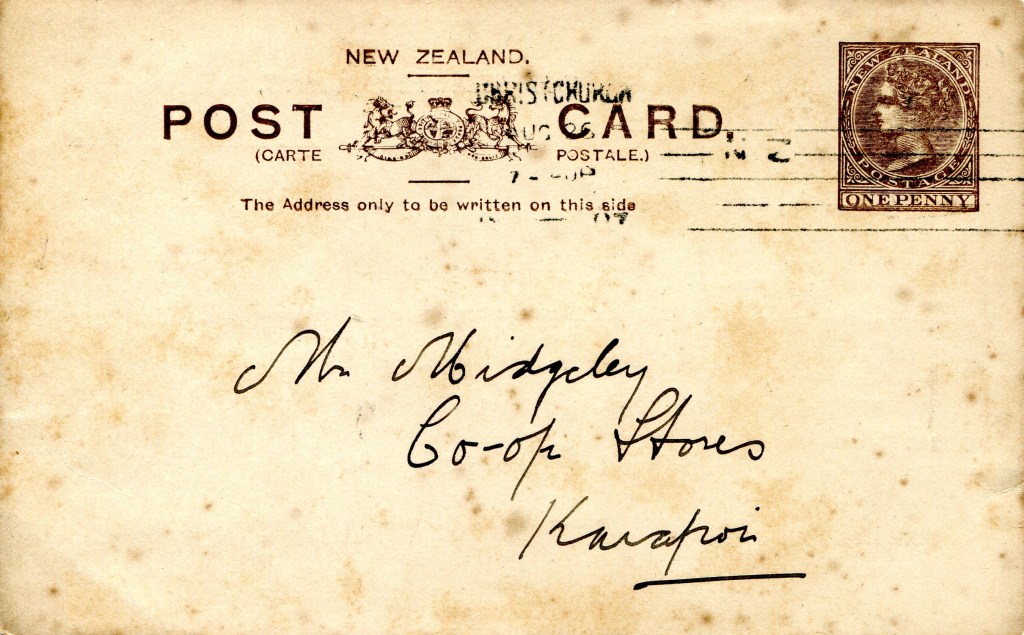 NEW ZEALAND.
POST CARD.
(CARTE POSTALE.)
The Address only to be written on this side
CHRISTCHURCH
AUG 26
N Z
07
NEW ZEALAND
POSTAGE
ONE PENNY
Mr Midgeley
Co-op Stores
Kaiapoi